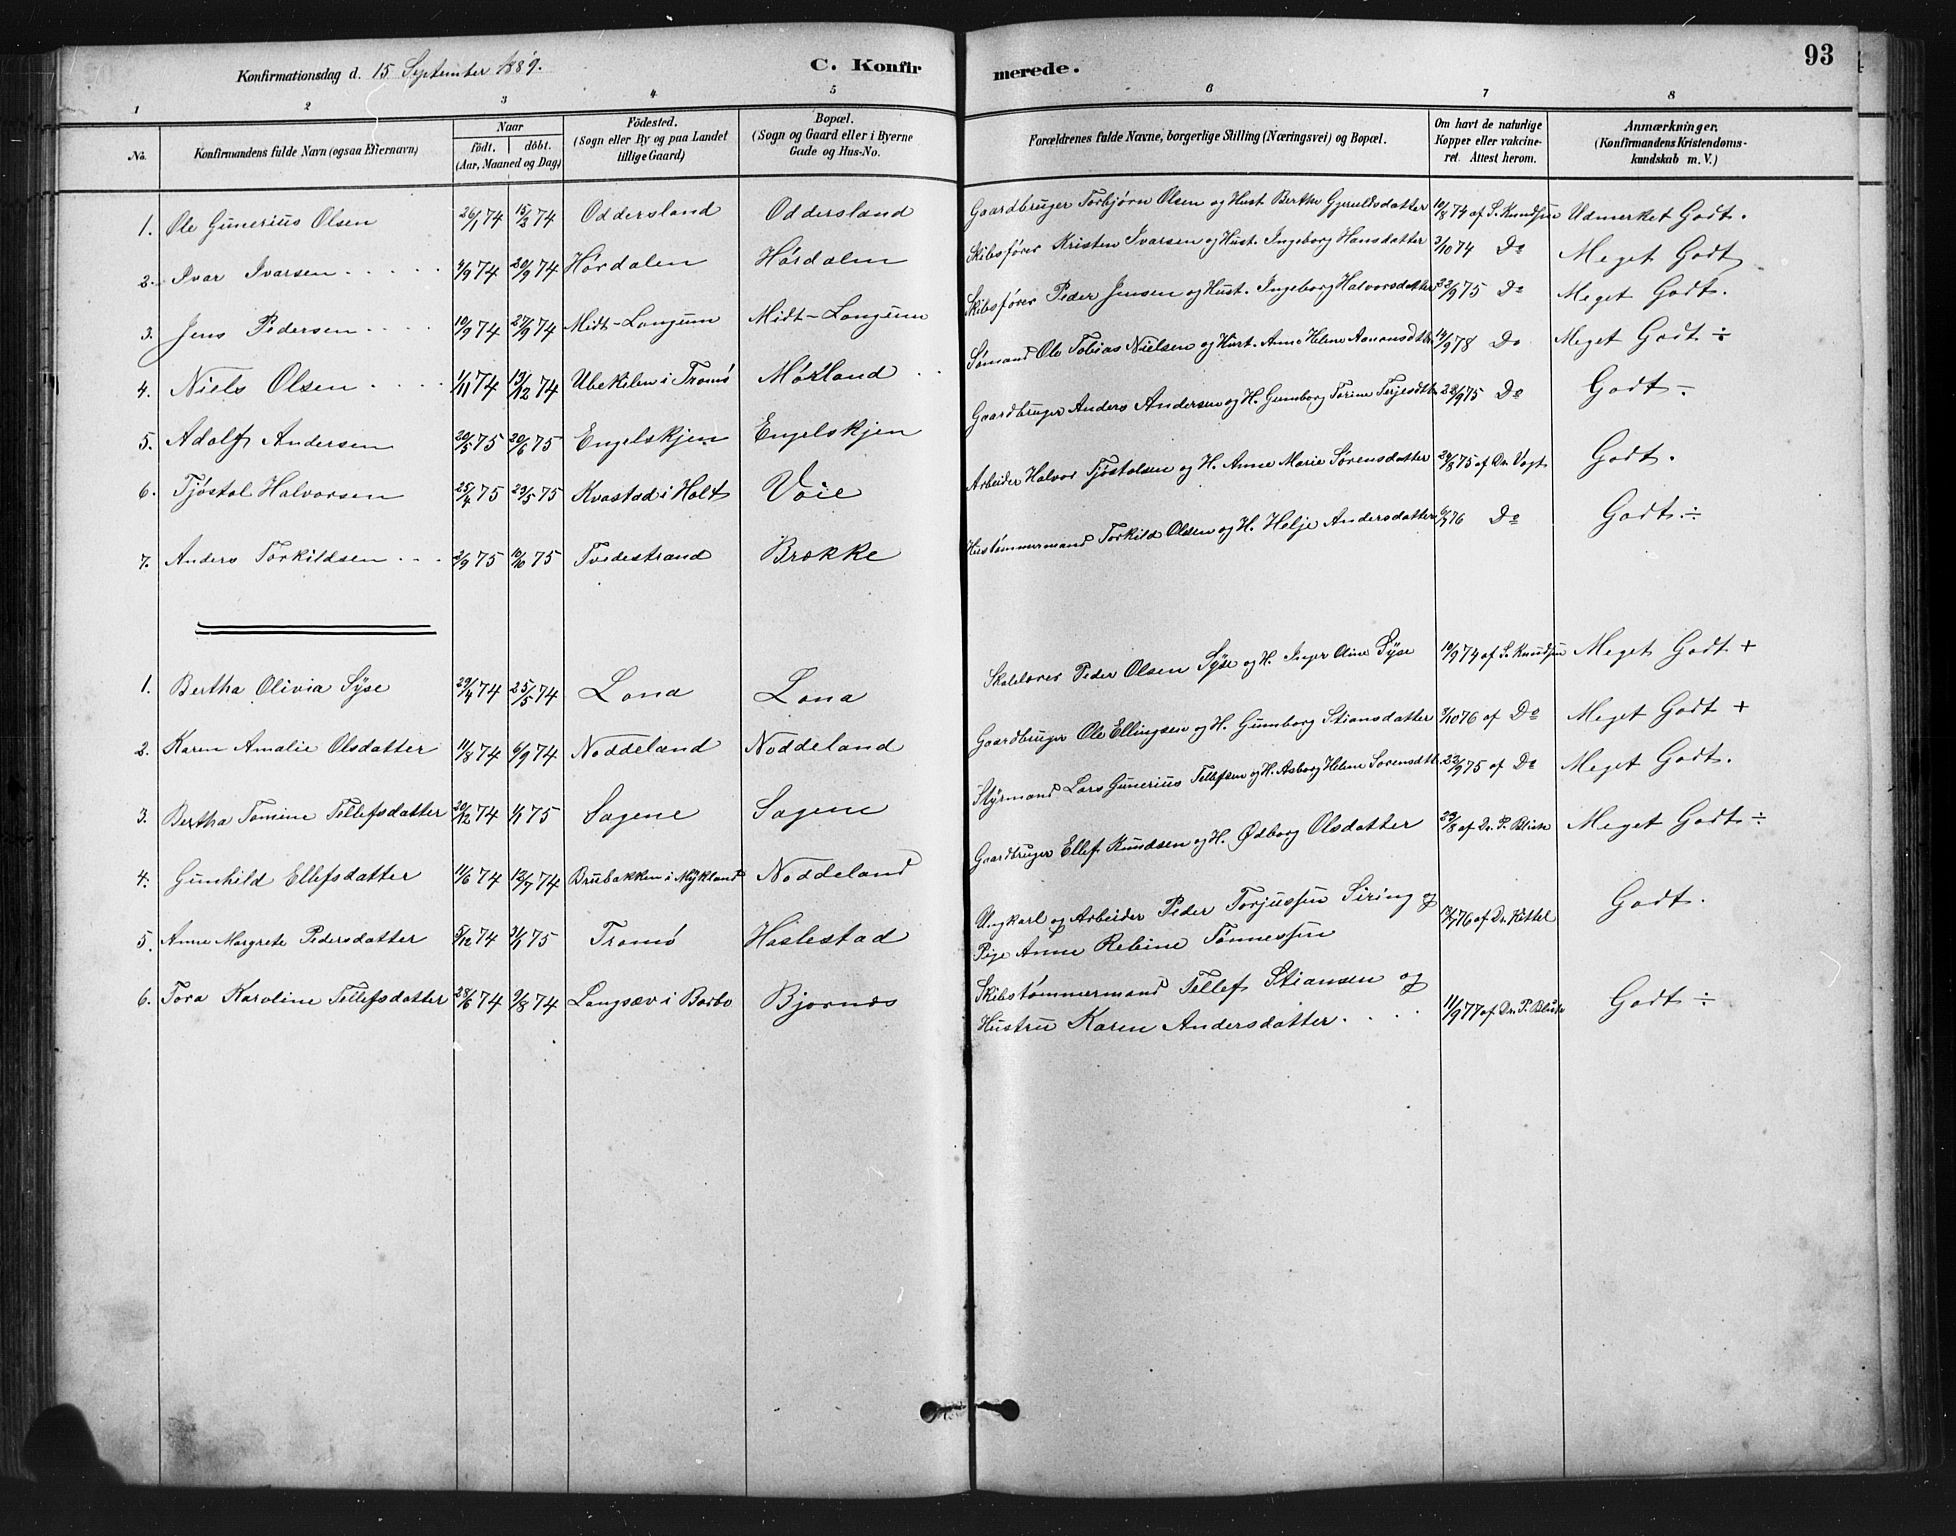 Konfirmationsdag d. 15 September 1889. C. Konfirmerede. 93
1 2 3 4 5 6 7 8
No. Konfirmandens fulde Navn (ogsaa Efternavn) Naar født. døbt. (Aar, Maaned og Dag) Fødested. (Sogn eller By og paa Landet tillige Gaard) Bopæl. (Sogn og Gaard eller i Byerne Gade og Hus-No. Forældrenes fulde Navne, borgerlige Stilling (Næringsvei) og Bopæl. Om havt de naturlige Kopper eller vakcineret. Attest herom. Anmærkninger. (Konfirmandens Kristendomskundskab m. V.)
1. Ole Gunerius Olsen 26/1 74 15/3 74 Oddersland Oddersland Gaardbruger Torbjørn Olsen og Hust. Berthe Gjeruldsdatter 10/8 74 af S. Knudsen Udmerket Godt.
2. Ivar Ivarsen 9/9 74 20/9 74 Hørdalen Hørdalen Skibsfører Kristen Ivarsen og Hust. Ingeborg Hansdatter 2/10 74 Do Meget Godt
3. Jens Pedersen 10/9 74 27/9 74 Midt-Longum Midt-Longum Skibsfører Peder Jensen og Hust. Ingeborg Halvorsdatter 22/9 75 Do Meget Godt.
4. Niels Olsen 1/11 74 13/12 74 Ubekilen i Tromø Mørland Sømand Ole Tobias Nielsen og Hust. Anne Helene Aanonsdtter 14/9 78 Do Meget Godt ÷
5. Adolf Andersen 20/5 75 20/6 75 Engelskjen Engelskjen Gaardbruger Anders Andersen og H. Gumborg Torine Terjesdtt. 22/9 75 Do Godt -
6. Tjøstol Halvorsen 25/4 75 23/5 75 Kvastad i Holt Voie Arbeider Halvor Tjøstolsen og H. Anne Marie Sørensdatter 29/8 75 af Dr. Vogt Godt.
7. Anders Torkildsen 2/9 75 10/10 75 Tvedestrand Brække Hustømmermand Torkild Olsen og H. Helje Andersdatter 76 Do Godt. ÷
1. Bertha Olivia Syse 29/4 74 25/5 74 Lona Lona Skolelærer Peder Olsen Syse og H. Inger Oline Syse 10/9 74 af S. Knudsen Meget Godt +
2. Karen Amalie Olsdatter 11/8 74 6/9 74 Noddeland Noddeland Gaardbruger Ole Ellingsen og H. Gumborg Stiansdatter 7/10 76 af Do Meget Godt +
3. Bertha Tomine Tellefsdatter 20/12 74 1/1 75 Sagene Sagene Styrmand Lars Gunerius Tellefsen og H. Asborg Helene Sørensdtt. 22/9 75 af Do Meget Godt.
4. Gunhild Ellefsdatter 11/6 74 12/7 74 Brubakken i Mykland Noddeland Gaardbruger Ellef Knudsen og H. Ødborg Olsdatter 29/8 af Dr. P. Blich Meget Godt ÷
5. Anne Margrete Pedersdatter 5/12 74 75 Tromø Haslestad Ungkarl og Arbeider Peder Torjussen Siring og
Pige Anne Rebine Tønnessen 76 af Dr. Kittel Godt.
6. Tora Karoline Tellefsdatter 28/6 74 9/8 74 Langsæv i Barbo Bjornes Skibstømmermand Tellef Stiansen og
Hustru Karen Andersdatter. 11/9 77 af Dr. P. Blich Godt ÷